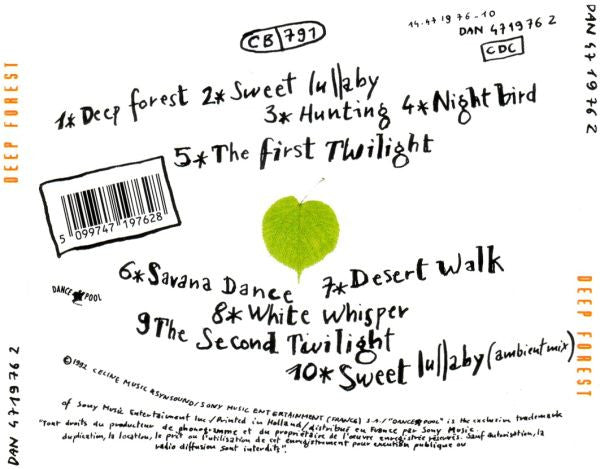 CB 791
14-471976-10
DAN 471976 2
CDC
DAN 471976 2
DEEP FOREST
1* Deep forest 2* Sweet lullaby
3* Hunting 4* Night bird
5* The first Twilight
5 099747 197628
6* Savana Dance 7* Desert Walk
DANCE POOL
8* White Whisper
9 The Second Twilight
10* Sweet lullaby (ambient mix)
DEEP FOREST
DAN 471976 2
©1992 CELINE MUSIC & SYNSOUND/SONY MUSIC ENTERTAINMENT (FRANCE) S.A./"DANCE POOL" is the exclusive trademark
of Sony Music Entertaiment Inc/Printed in Holland/distribué en France par Sony Music.
"Tout droits du producteur de phonogramme et du propriétaire de l'œuvre enregistrée réservés. Sauf autorisation, la
duplication, la location, le prêt ou l'utilisation de cet enregistrement pour exécution publique ou
radio diffusion sont interdits".